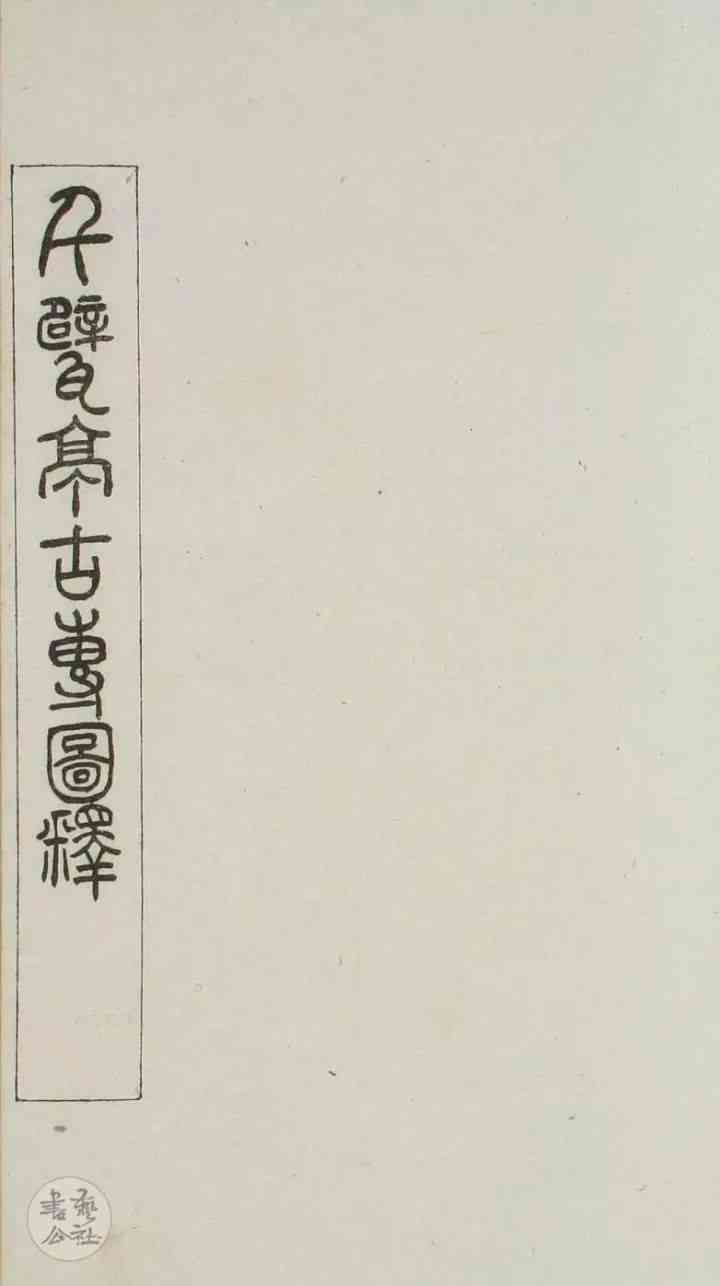 千甓亭古專圖釋
書藝公社